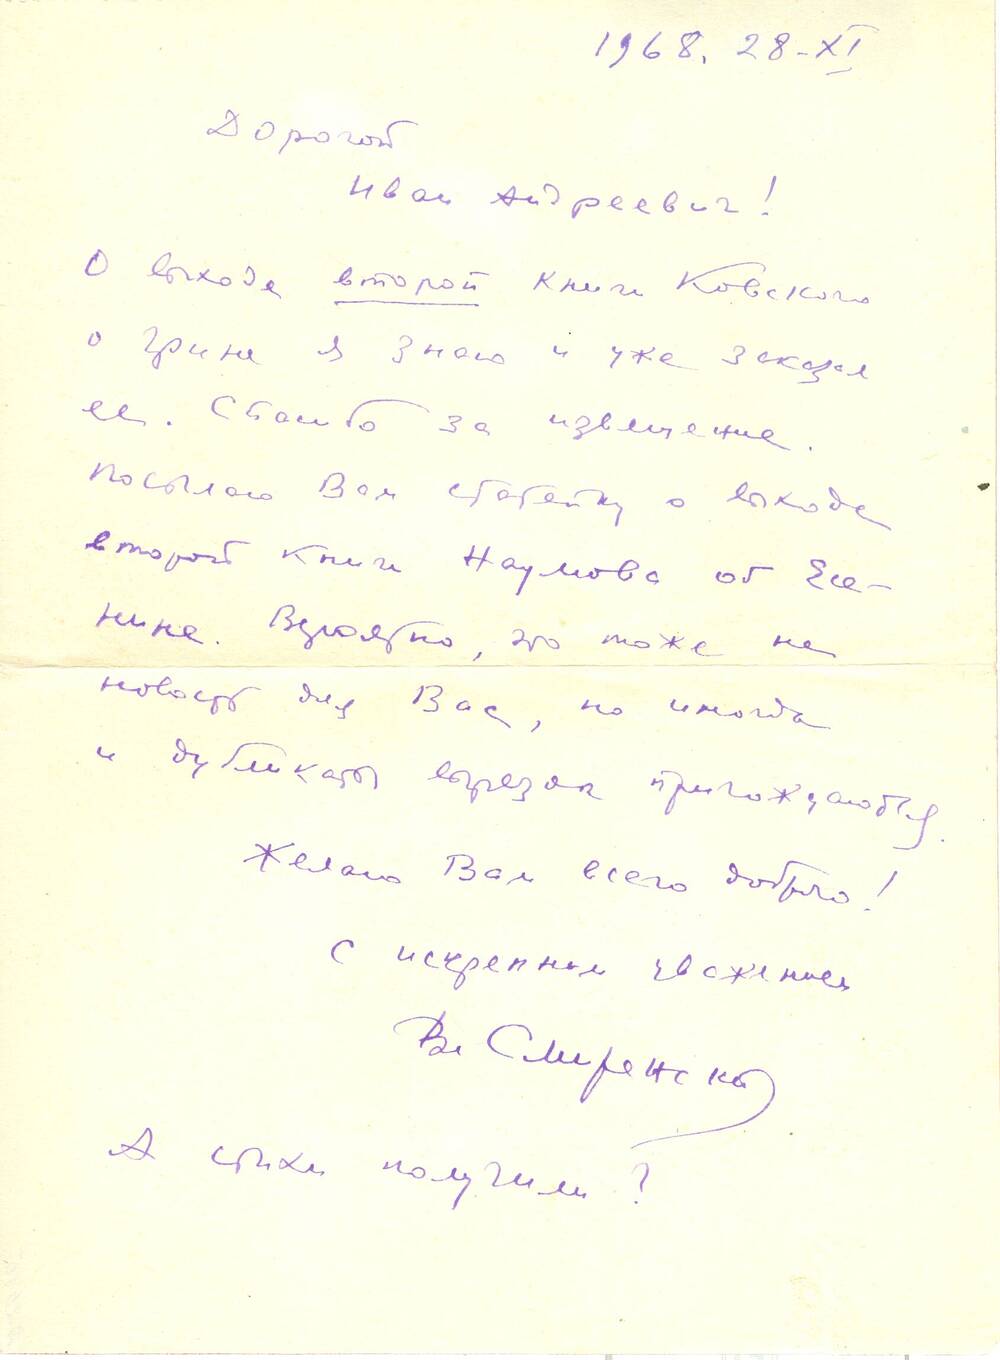 1968. 28-XI
Дорогой
Иван Андреевич!
О выходе второй книги Ковского
о Грине я знаю и уже заказал
ее. Спасибо за извещение.
Посылаю Вам статейку о выходе
второй книги Наумова об Есе-
нине. Вероятно, это тоже не
новость для Вас, но иногда
и дубликаты вырезок пригождаются.
Желаю Вам всего доброго!
С искренним уважением
Вл Смиренский
А стихи получили?